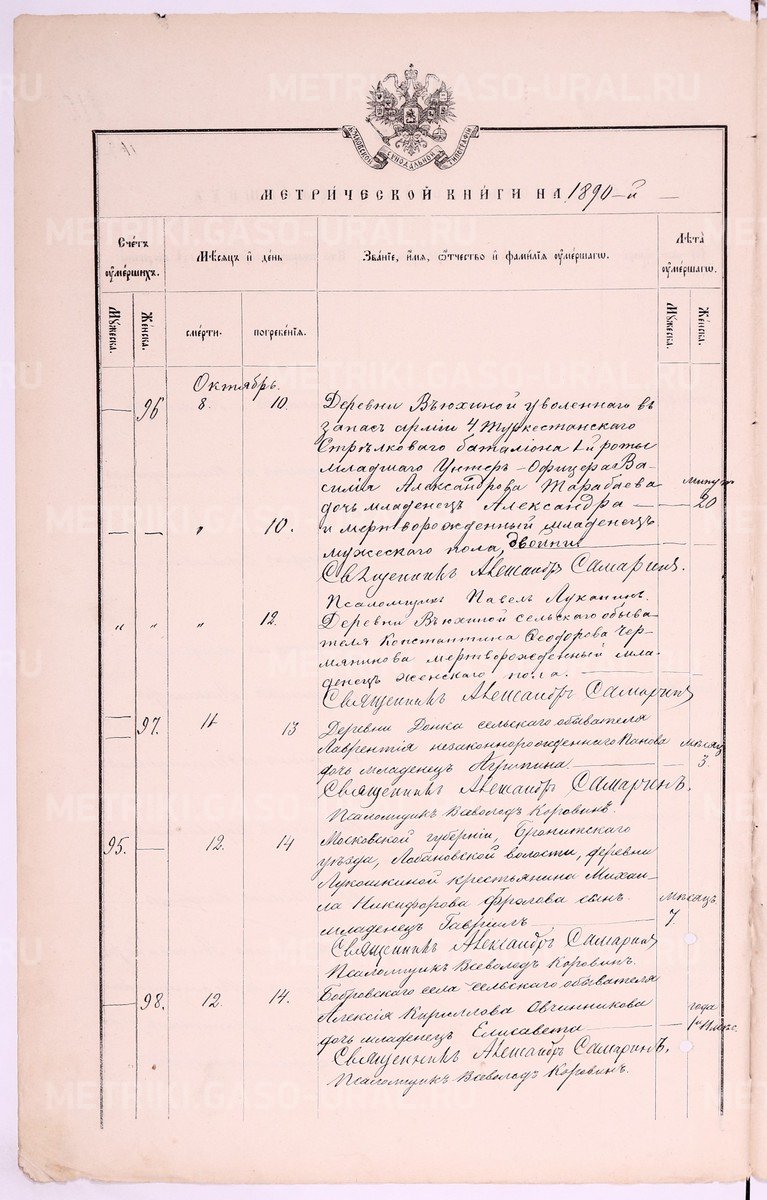 METRIKI.GASO-URAL.RU
МЕТРИ́ЧЕСКОЙ КНИ́ГИ НА 1890-й
Сче́тъ
ᲂу҆ме́ршихъ.
Мѣ́сяцъ и҆ де́нь
Зва́нїе, и҆́мя, ѻ҆́тчество и҆ фами́лїя ᲂу҆ме́ршагѡ.
Лѣ́та
ᲂу҆ме́ршагѡ.
Мꙋ́жеска.
Же́нска.
сме́рти.
погребе́нїя.
Мꙋ́жеска.
Же́нска.
Октябрь.
96 8. 10. Деревни Вьюхиной уволеннаго въ
запасъ арміи 4 Туркестанскаго
Стрѣлковаго баталіона 1-й роты
младшаго Унтеръ-Офицера Ва-
силія Александрова Тарабаева
дочь младенецъ Александра — минутъ 20
— — „ 10. и мертворожденный младенецъ
мужескаго пола, двойни
Священникъ Александръ Самаринъ.
Псаломщикъ Павелъ Луканинъ.
„ „ „ 12. Деревни Вьюхиной сельскаго обыва-
теля Константина Ѳеодорова Чер-
мянинова мертворожденный мла-
денецъ женскаго пола.
Священникъ Александръ Самаринъ
— 97. 11 13 Деревни сельскаго обывателя
Лаврентія незаконнорожденнаго Панова
дочь младенецъ Агрипина. — мѣсяц. 3.
Священникъ Александръ Самаринъ.
Псаломщикъ Всеволодъ Коровинъ.
95. — 12. 14 Московской губерніи, Бронитскаго
уѣзда, Лобановской волости, деревни
Лукошкиной крестьянина Михаи-
ла Никифорова Фролова сынъ
младенецъ Гавріилъ — мѣсяцъ 7.
Священникъ Александръ Самаринъ
Псаломщикъ Всеволодъ Коровинъ.
— 98. 12. 14. Бобровскаго села сельскаго обывателя
Алексія Кириллова Овчинникова
дочь младенецъ Елисавета — года
Священникъ Александръ Самаринъ.
Псаломщикъ Всеволодъ Коровинъ.